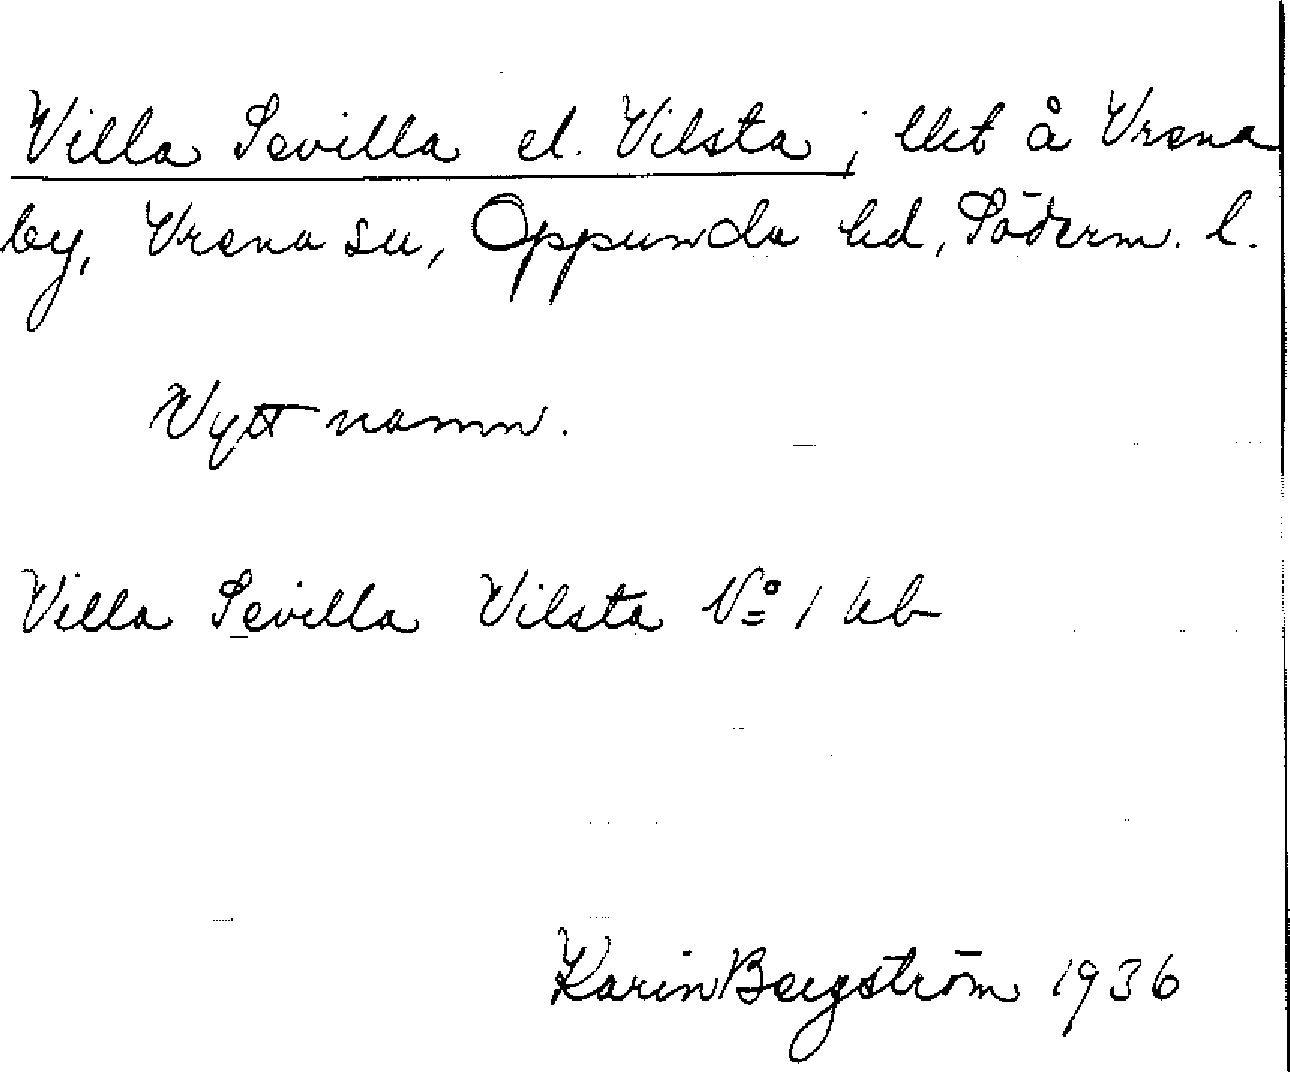 Villa Sevilla el. Vilsta; lht å Vrena
by, Vrena sn, Oppunda hd, Söderm. l.
Nytt namn.
Villa Sevilla Vilsta No 1 kb
Karin Bergström 1936